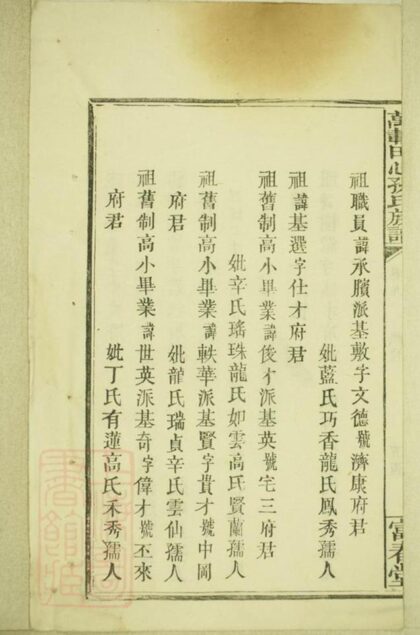 萬載田心孫氏族譜
富春堂
祖職員諱承臏派基敷字文德號濟庚府君
妣藍氏巧香龍氏鳳秀孺人
祖諱基選字仕才府君
祖舊制高小畢業諱俊才派基英號宅三府君
妣辛氏瑤珠龍氏如雲高氏賢蘭孺人
祖舊制高小畢業諱軼華派基賢字贊才號中岡
府君 妣龍氏瑞貞辛氏雲仙孺人
祖舊制高小畢業諱世英派基奇字偉才號丕來
府君 妣丁氏有蓮高氏禾秀孺人